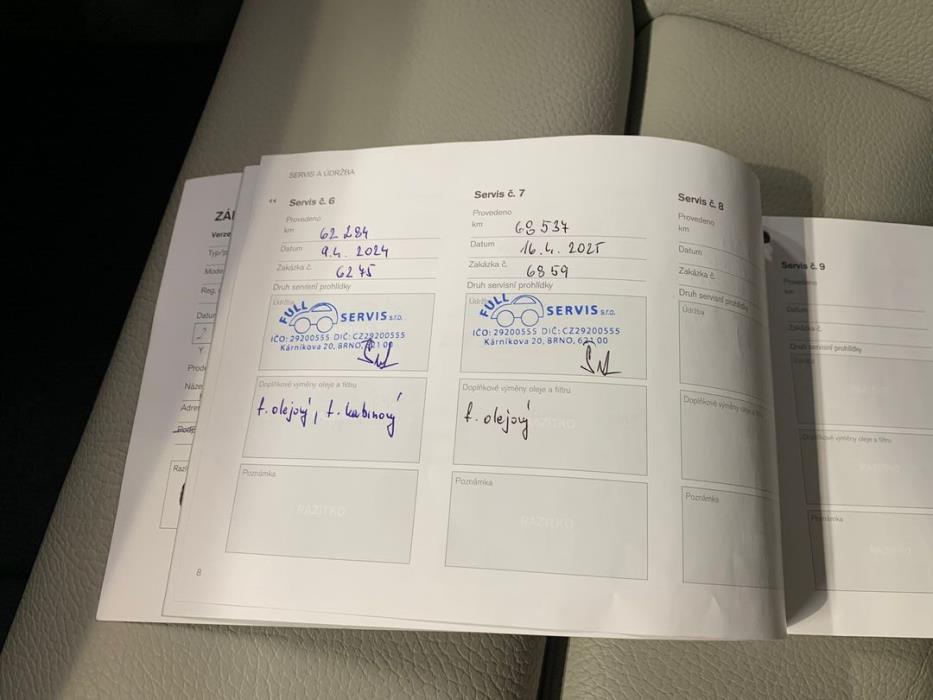 SERVIS A ÚDRŽBA
Servis č. 6
Provedeno
km 62 284
Datum 9.4. 2024
Zakázka č. 6245
Druh servisní prohlídky
Údržba
FULL SERVIS s.r.o.
IČO: 29200555 DIČ: CZ29200555
Kárníkova 20, BRNO, 621 00
Doplňkové výměny oleje a filtru
f. olejový, f. kabinový
Poznámka
RAZÍTKO
8
Servis č. 7
Provedeno
km 68 537
Datum 16.4. 2025
Zakázka č. 6859
Druh servisní prohlídky
Údržba
FULL SERVIS s.r.o.
IČO: 29200555 DIČ: CZ29200555
Kárníkova 20, BRNO, 621 00
Doplňkové výměny oleje a filtru
f. olejový
RAZÍTKO
Poznámka
RAZÍTKO
Servis č. 8
Provedeno
km
Datum
Zakázka č.
Druh servisní prohlídky
Údržba
Doplňkové výměny oleje a filtru
Poznámka
Servis č. 9
Provedeno
km
Datum
Zakázka č.
Druh servisní prohlídky
Doplňkové výměny oleje a filtru
RAZÍTKO
Poznámka
RAZÍTKO